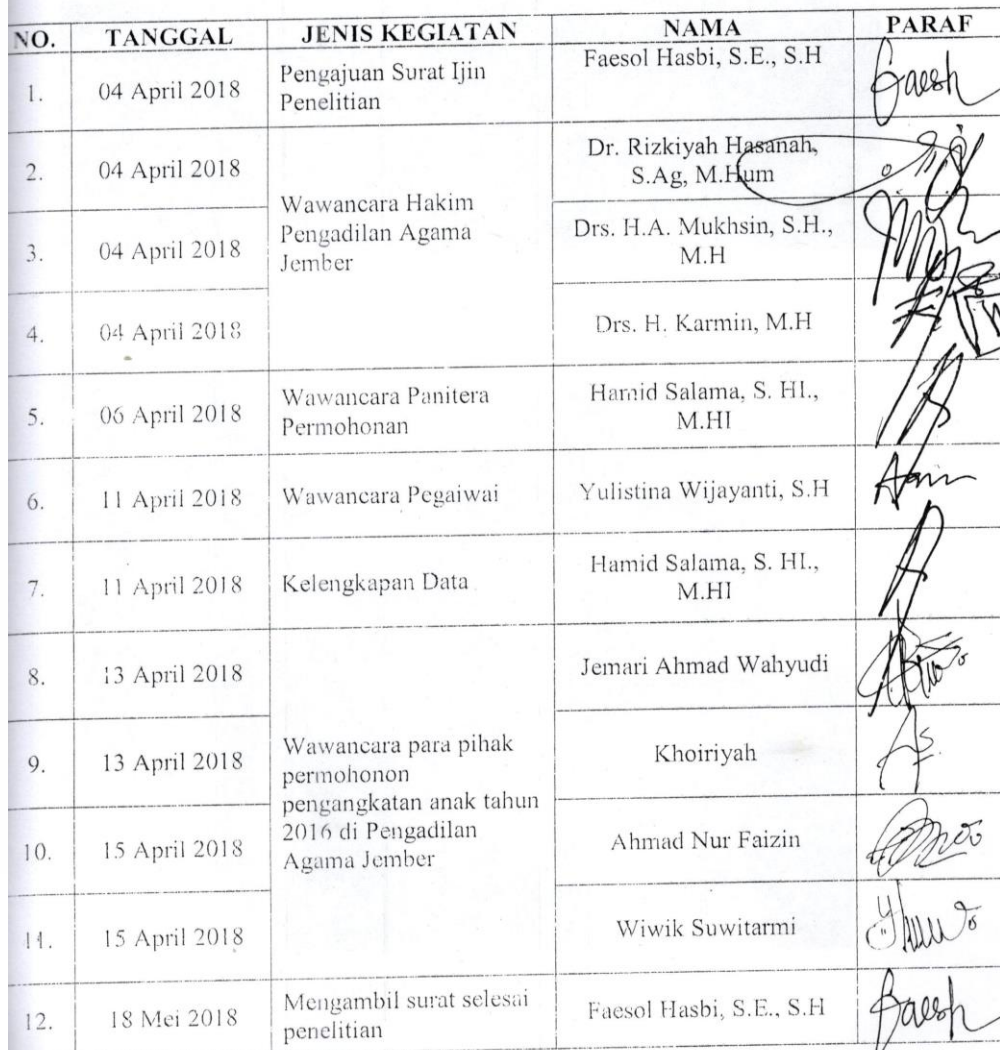 NO. TANGGAL JENIS KEGIATAN NAMA PARAF
1. 04 April 2018 Pengajuan Surat Ijin Penelitian Faesol Hasbi, S.E., S.H
2. 04 April 2018 Wawancara Hakim Pengadilan Agama Jember Dr. Rizkiyah Hasanah, S.Ag, M.Hum
3. 04 April 2018 Drs. H.A. Mukhsin, S.H., M.H
4. 04 April 2018 Drs. H. Karmin, M.H
5. 06 April 2018 Wawancara Panitera Permohonan Hamid Salama, S. HI., M.HI
6. 11 April 2018 Wawancara Pegaiwai Yulistina Wijayanti, S.H
7. 11 April 2018 Kelengkapan Data Hamid Salama, S. HI., M.HI
8. 13 April 2018 Wawancara para pihak permohonon pengangkatan anak tahun 2016 di Pengadilan Agama Jember Jemari Ahmad Wahyudi
9. 13 April 2018 Khoiriyah
10. 15 April 2018 Ahmad Nur Faizin
11. 15 April 2018 Wiwik Suwitarmi
12. 18 Mei 2018 Mengambil surat selesai penelitian Faesol Hasbi, S.E., S.H